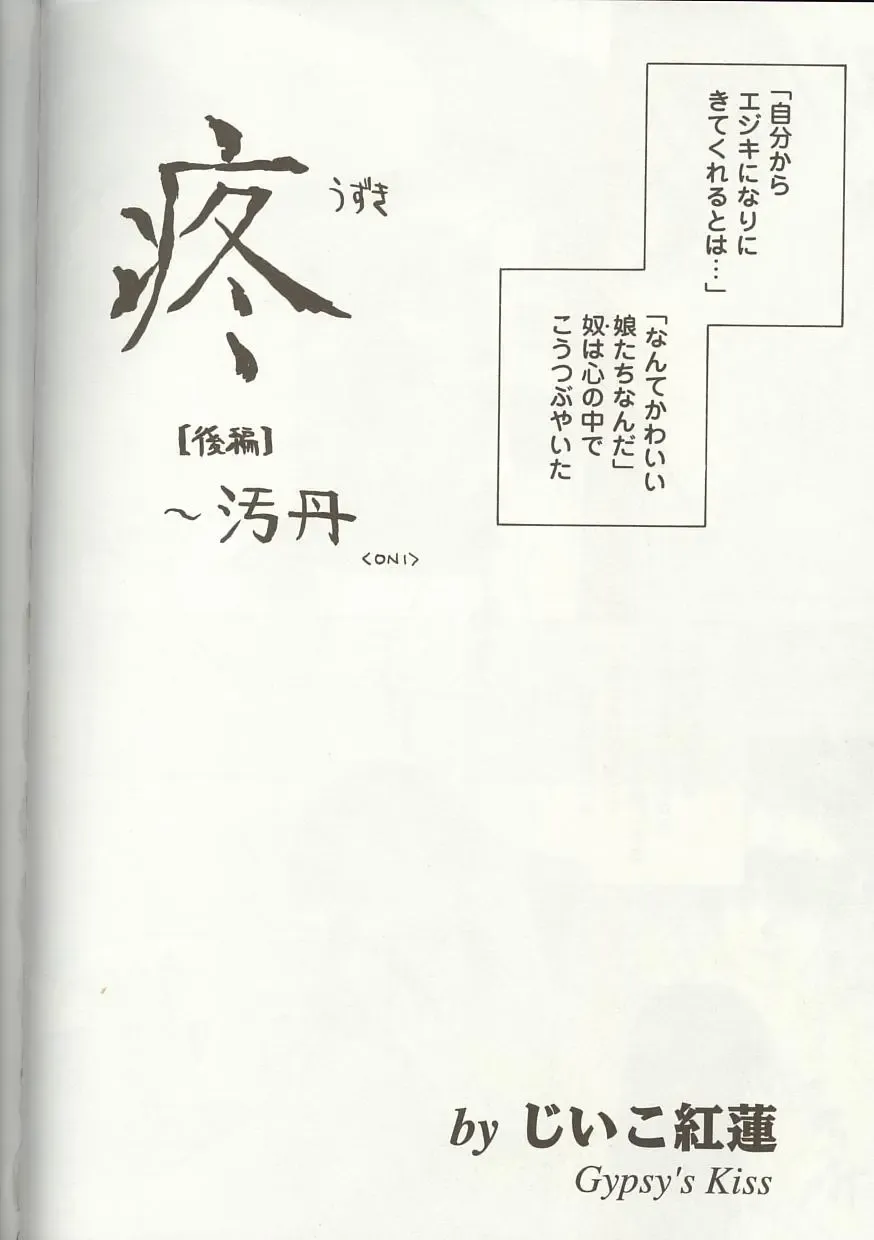 「自分から
エジキになりに
きてくれるとは…」
「なんてかわいい
娘たちなんだ」
奴は心の中で
こうつぶやいた
疼
うずき
【後編】
～汚丹
<ONI>
by じいこ紅蓮
Gypsy's Kiss